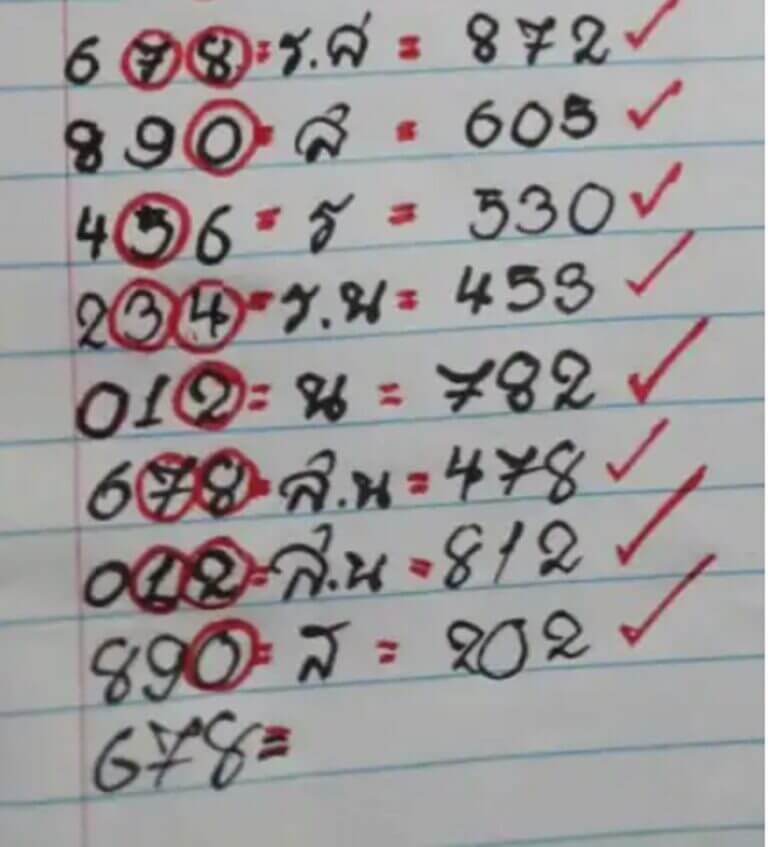 678=ร.ส=872
890=ส=605
456=ร=530
234=ร.น=453
012=น=782
678=ส.น=478
012=ส.น=812
890=ส=202
678=